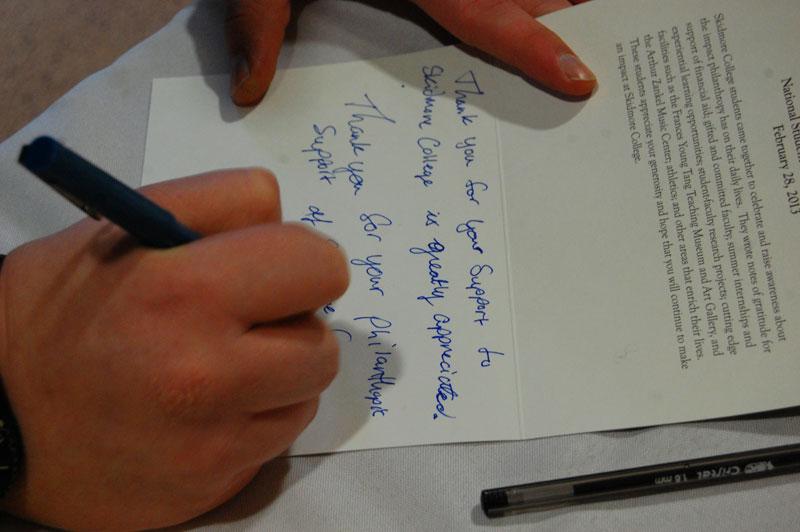 National Stude
February 28, 2013
Skidmore College students came together to celebrate and raise awareness about
the impact philanthropy has on their daily lives. They wrote notes of gratitude for
support of financial aid; gifted and committed faculty; summer internships and
experiential learning opportunities; student-faculty research projects; cutting edge
facilities such as the Frances Young Tang Teaching Museum and Art Gallery, and
the Arthur Zankel Music Center; athletics; and other areas that enrich their lives.
These students appreciate your generosity and hope that you will continue to make
an impact at Skidmore College.
Thank you for your Support to
Skidmore College is greatly appreciated.
Thank you for your philanthropic
Support of
Cristal 1.6mm